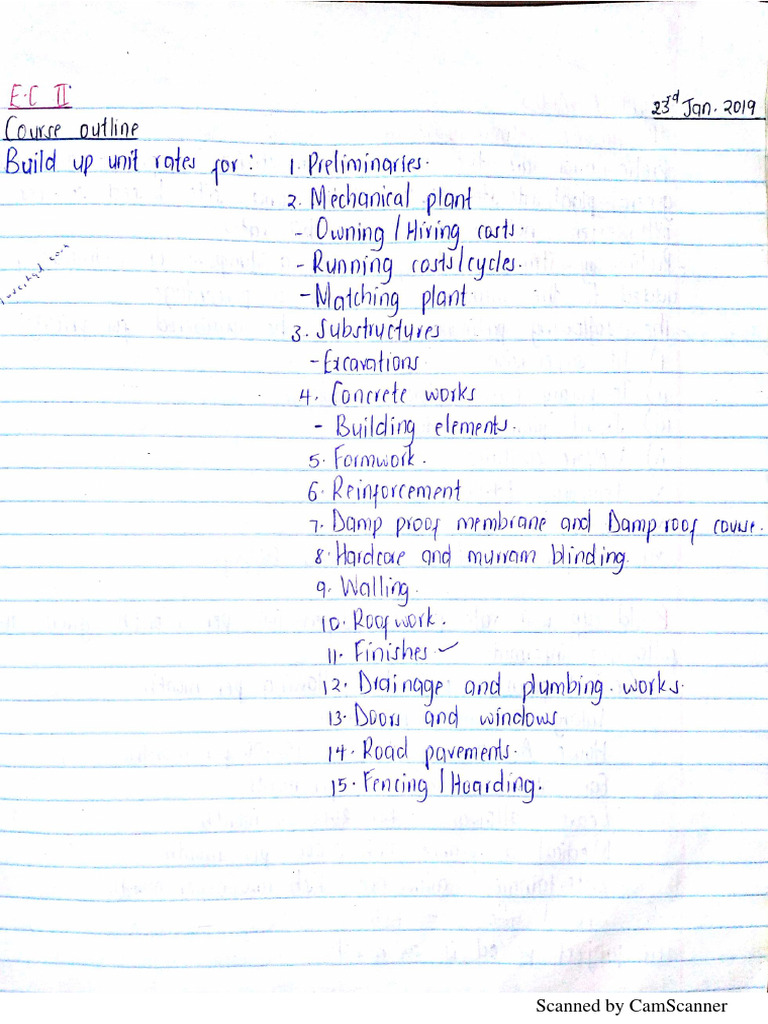 E.C II.
23rd Jan. 2019
Course outline
Build up unit rates for: 1. Preliminaries.
2. Mechanical plant
- Owning / Hiring costs.
- Running costs/cycles.
- Matching plant
3. Substructures
- Excavations
4. Concrete works
- Building elements.
5. Formwork.
6. Reinforcement
7. Damp proof membrane and Damp roof course.
8. Hardcore and murram blinding.
9. Walling.
10. Roof work.
11. Finishes ✓
12. Drainage and plumbing works.
13. Doors and windows
14. Road pavements.
15. Fencing / Hoarding.
Scanned by CamScanner